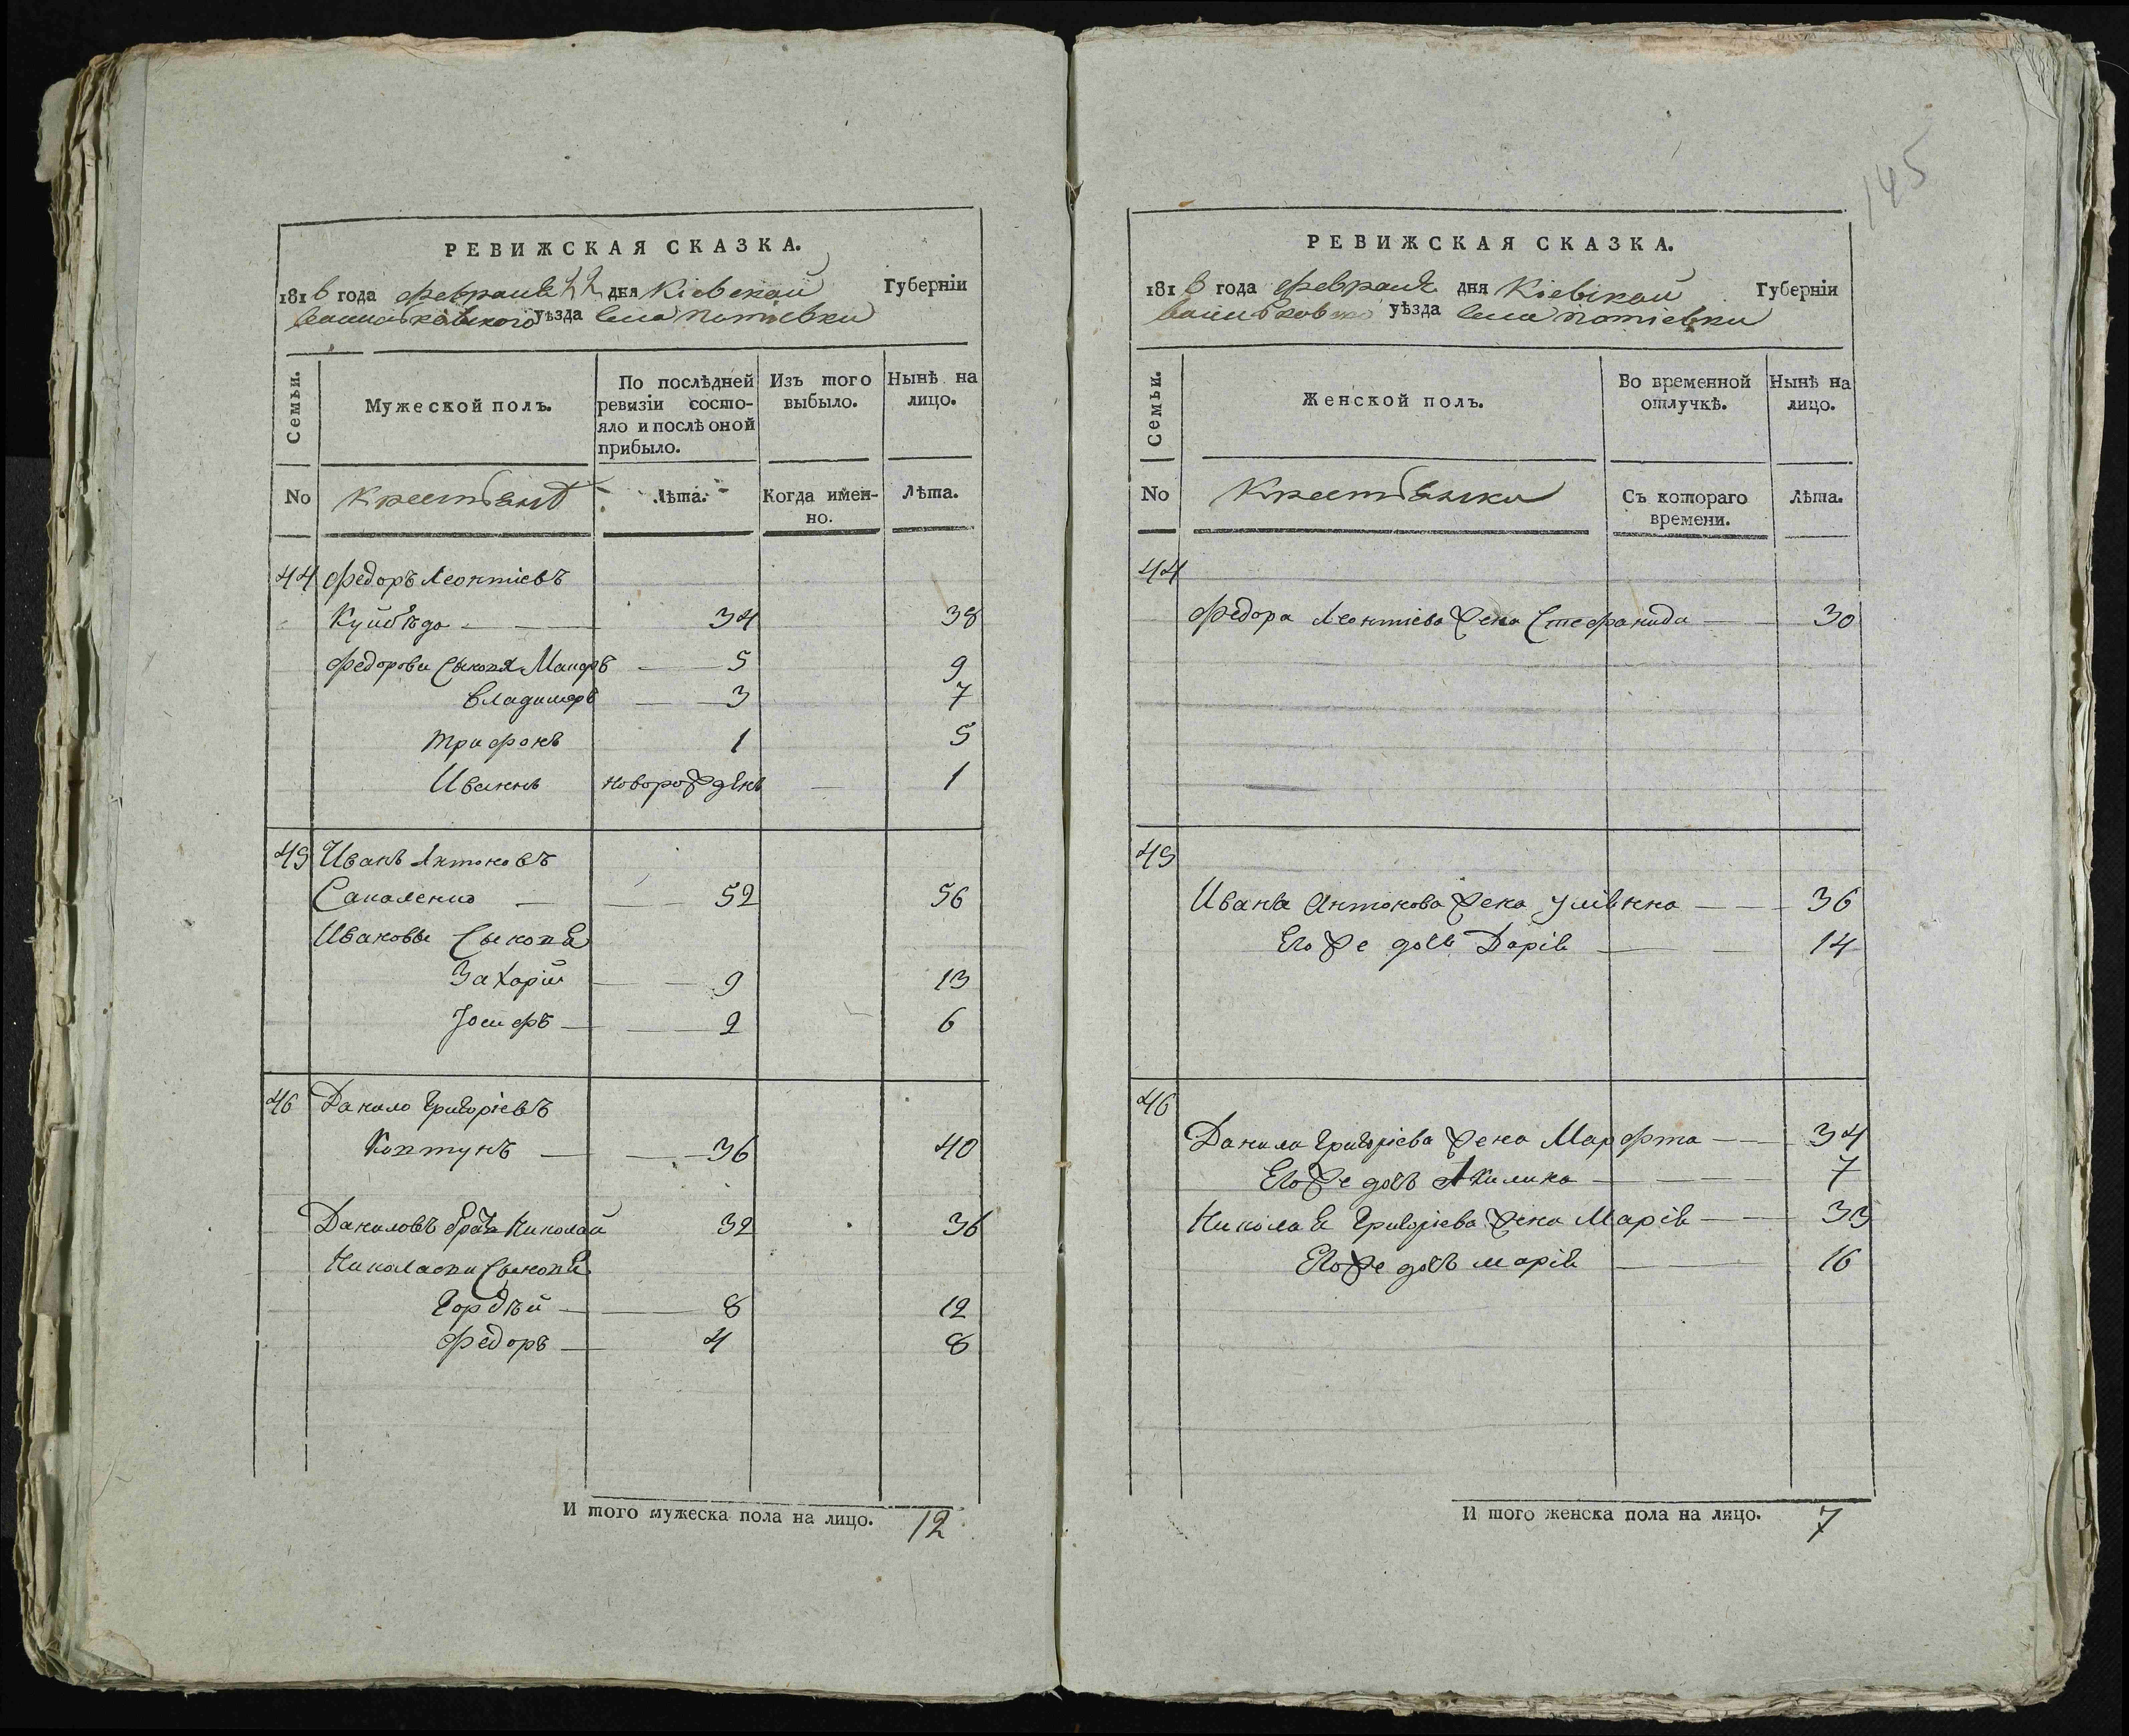 145
РЕВИЖСКАЯ СКАЗКА.
1816 года февраля 22 дня Кіевской Губерніи
васильковского уѣзда села потіевки
Семьи.
Мужеской полъ.
По послѣдней ревизіи состо-
яло и послѣ оной
прибыло.
Изъ того выбыло.
Нынѣ на лицо.
No крестьянѣ Лѣта. Когда имен-
но. Лѣта.
44 Федоръ Леонтіевъ
Куйбѣда 34 38
Федорови сыновя 5 9
владимѣръ 3 7
Трифонъ 1 5
Иваннъ новорожденъ 1
45 Иванъ Антоновъ
52 56
Ивановы сыновя
Захарій 9 13
Іосифъ 2 6
46 Данило Григоріевъ
Коптунъ 36 40
Даниловъ братъ Николай 32 36
сыновя
Гордѣй 8 12
Федоръ 4 8
И того мужеска пола на лицо. 12
РЕВИЖСКАЯ СКАЗКА.
1816 года февраля дня Кіевской Губерніи
васильковско уѣзда села потіевки
Семьи.
Женской полъ.
Во временной отлучкѣ.
Нынѣ на лицо.
No Крестьянки Съ котораго
времени. Лѣта.
44
Федора Леонтіева жена Стефанида 30
45
Ивана Антонова жена Уліянна 36
Его же дочь Дарія 14
46
Данила Григоріева жена Марфта 34
Его же дочъ Акилина 7
Николая Григоріева жена Марія 33
Его же дочъ марія 16
И того женска пола на лицо. 7